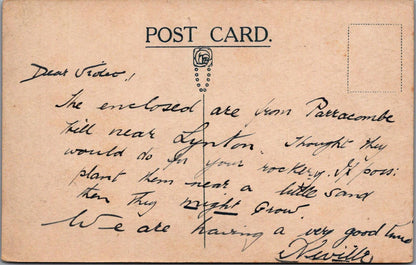 POST CARD.
Dear Video!
The enclosed are from Parracombe
hill near Lynton. Thought they
would do for your rockery. If poss:
plant them near a little sand
then they might grow.
We are having a very good time
Neville